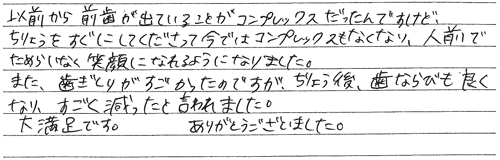 以前から前歯が出ていることがコンプレックスだったんですけど、
ちりょうをすぐにしてくださって今ではコンプレックスもなくなり、人前で
ためらいなく笑顔になれるようになりました。
また、歯ぎしりがすごかったのですが、ちりょう後、歯ならびも良く
なり、すごく減ったと言われました。
大満足です。 ありがとうございました。